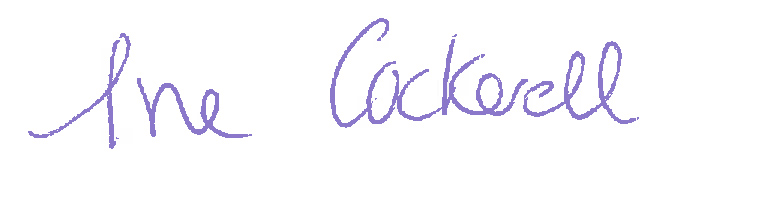 Ine Cockerell